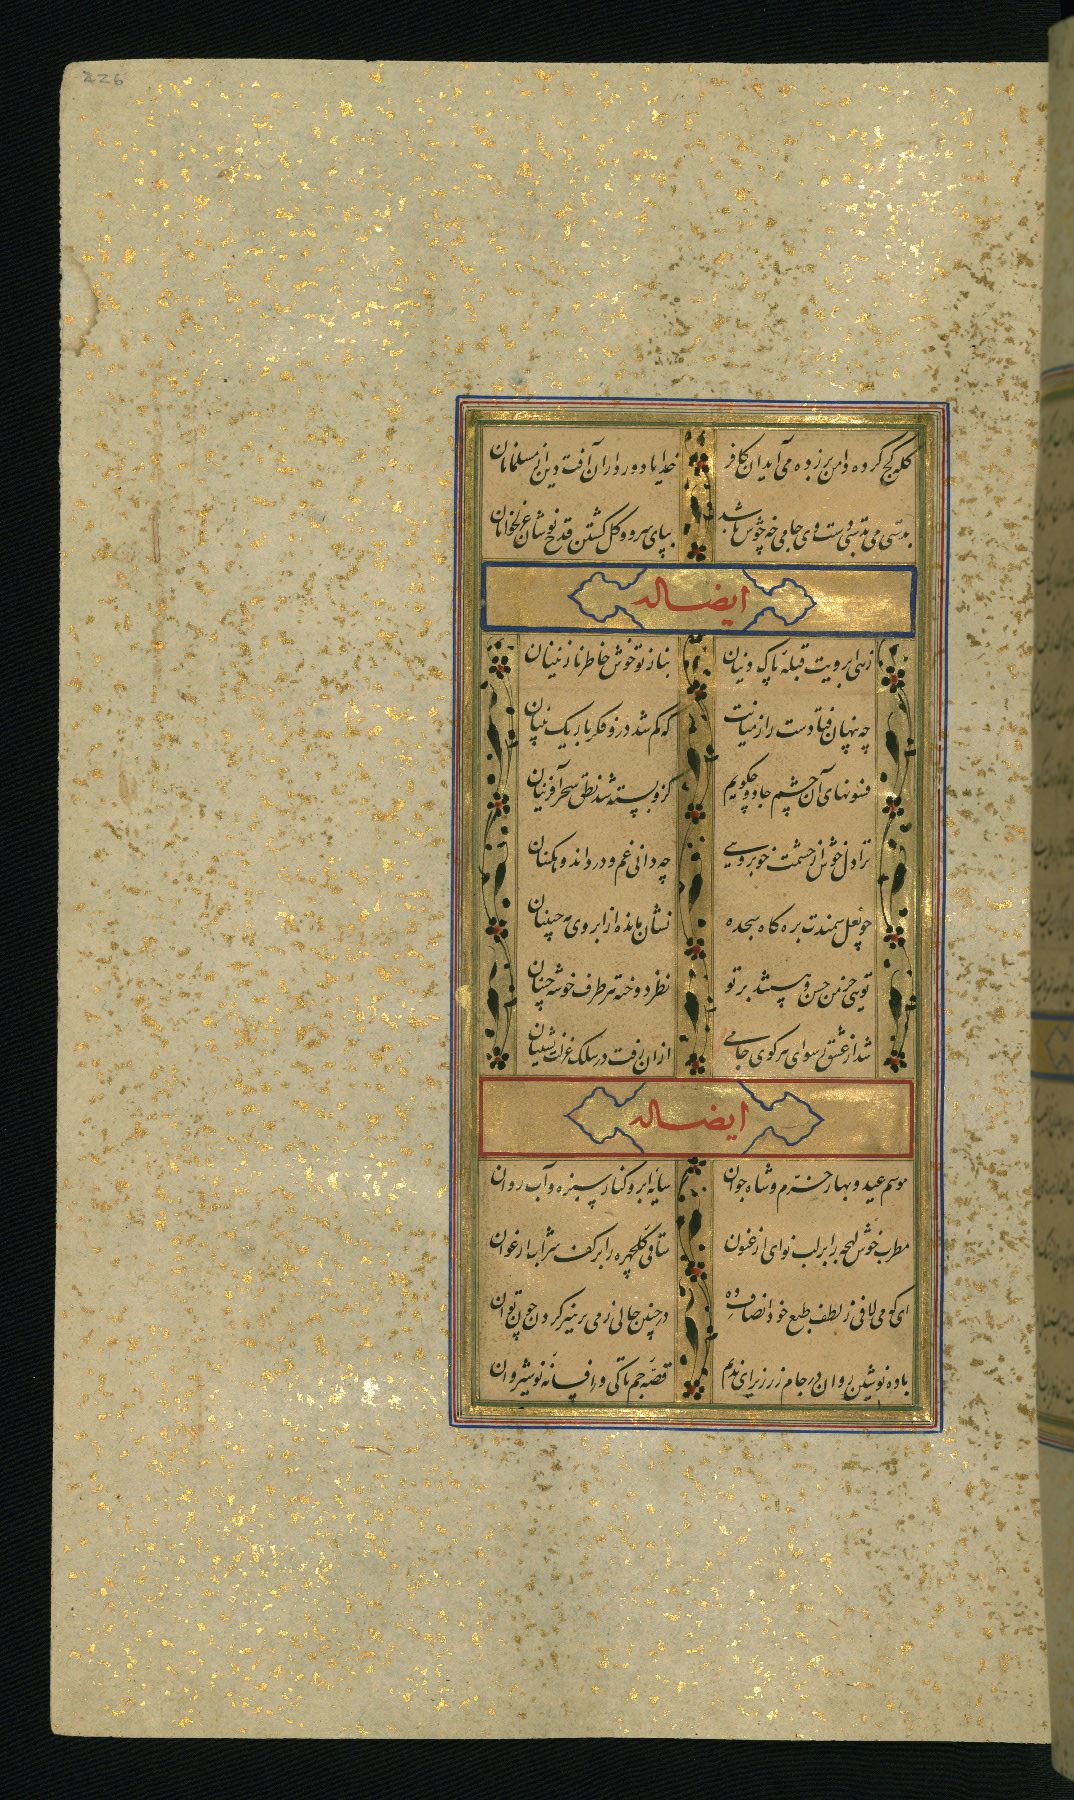 226
کله کج کرده دامن برزده می‌آید آن کافر خدایا دور دار آن آفت دین از مسلمانان
بدستی می بدستی دست وی جامی چه خوش باشد بپای سرو و گل گشتن قدح نوشان غزلخوانان
ایضا له
زهی ابرویت قبلهٔ پاک دینان بناز تو خوش خاطر نازنینان
چه پنهان فتادست راز میانت که گم شد درو فکر باریک بینان
فسونهای آن چشم جادو چگویم کزو بسته شد نطق سحر آفرینان
ترا دل خوش از حشمت خوبرویی چه دانی غم و درد اندوهگینان
چو نعل سمندت بره گاه سجده نشان مانده از ابروی مه جبینان
تویی خرمن حسن و هستند بر تو نظر دوخته هر طرف خوشه چینان
شد از عشق رسوای هر کوی جامی ازان رفت در سلک عزلت نشینان
ایضا له
موسم عید و بهار خرم و شاه جوان سایهٔ ابر و کنار سبزه و آب روان
مطرب خوش لهجه را بر لب نوای ارغنون ساقی گلچهره را بر کف شراب ارغوان
ای که می لافی ز لطف طبع خود انصاف ده در چنین حالی ز می پرهیز کردن چون توان
باده نوشین روان در جام زر ریز ای ندیم قصهٔ جم تا کی و افسانهٔ نوشیروان